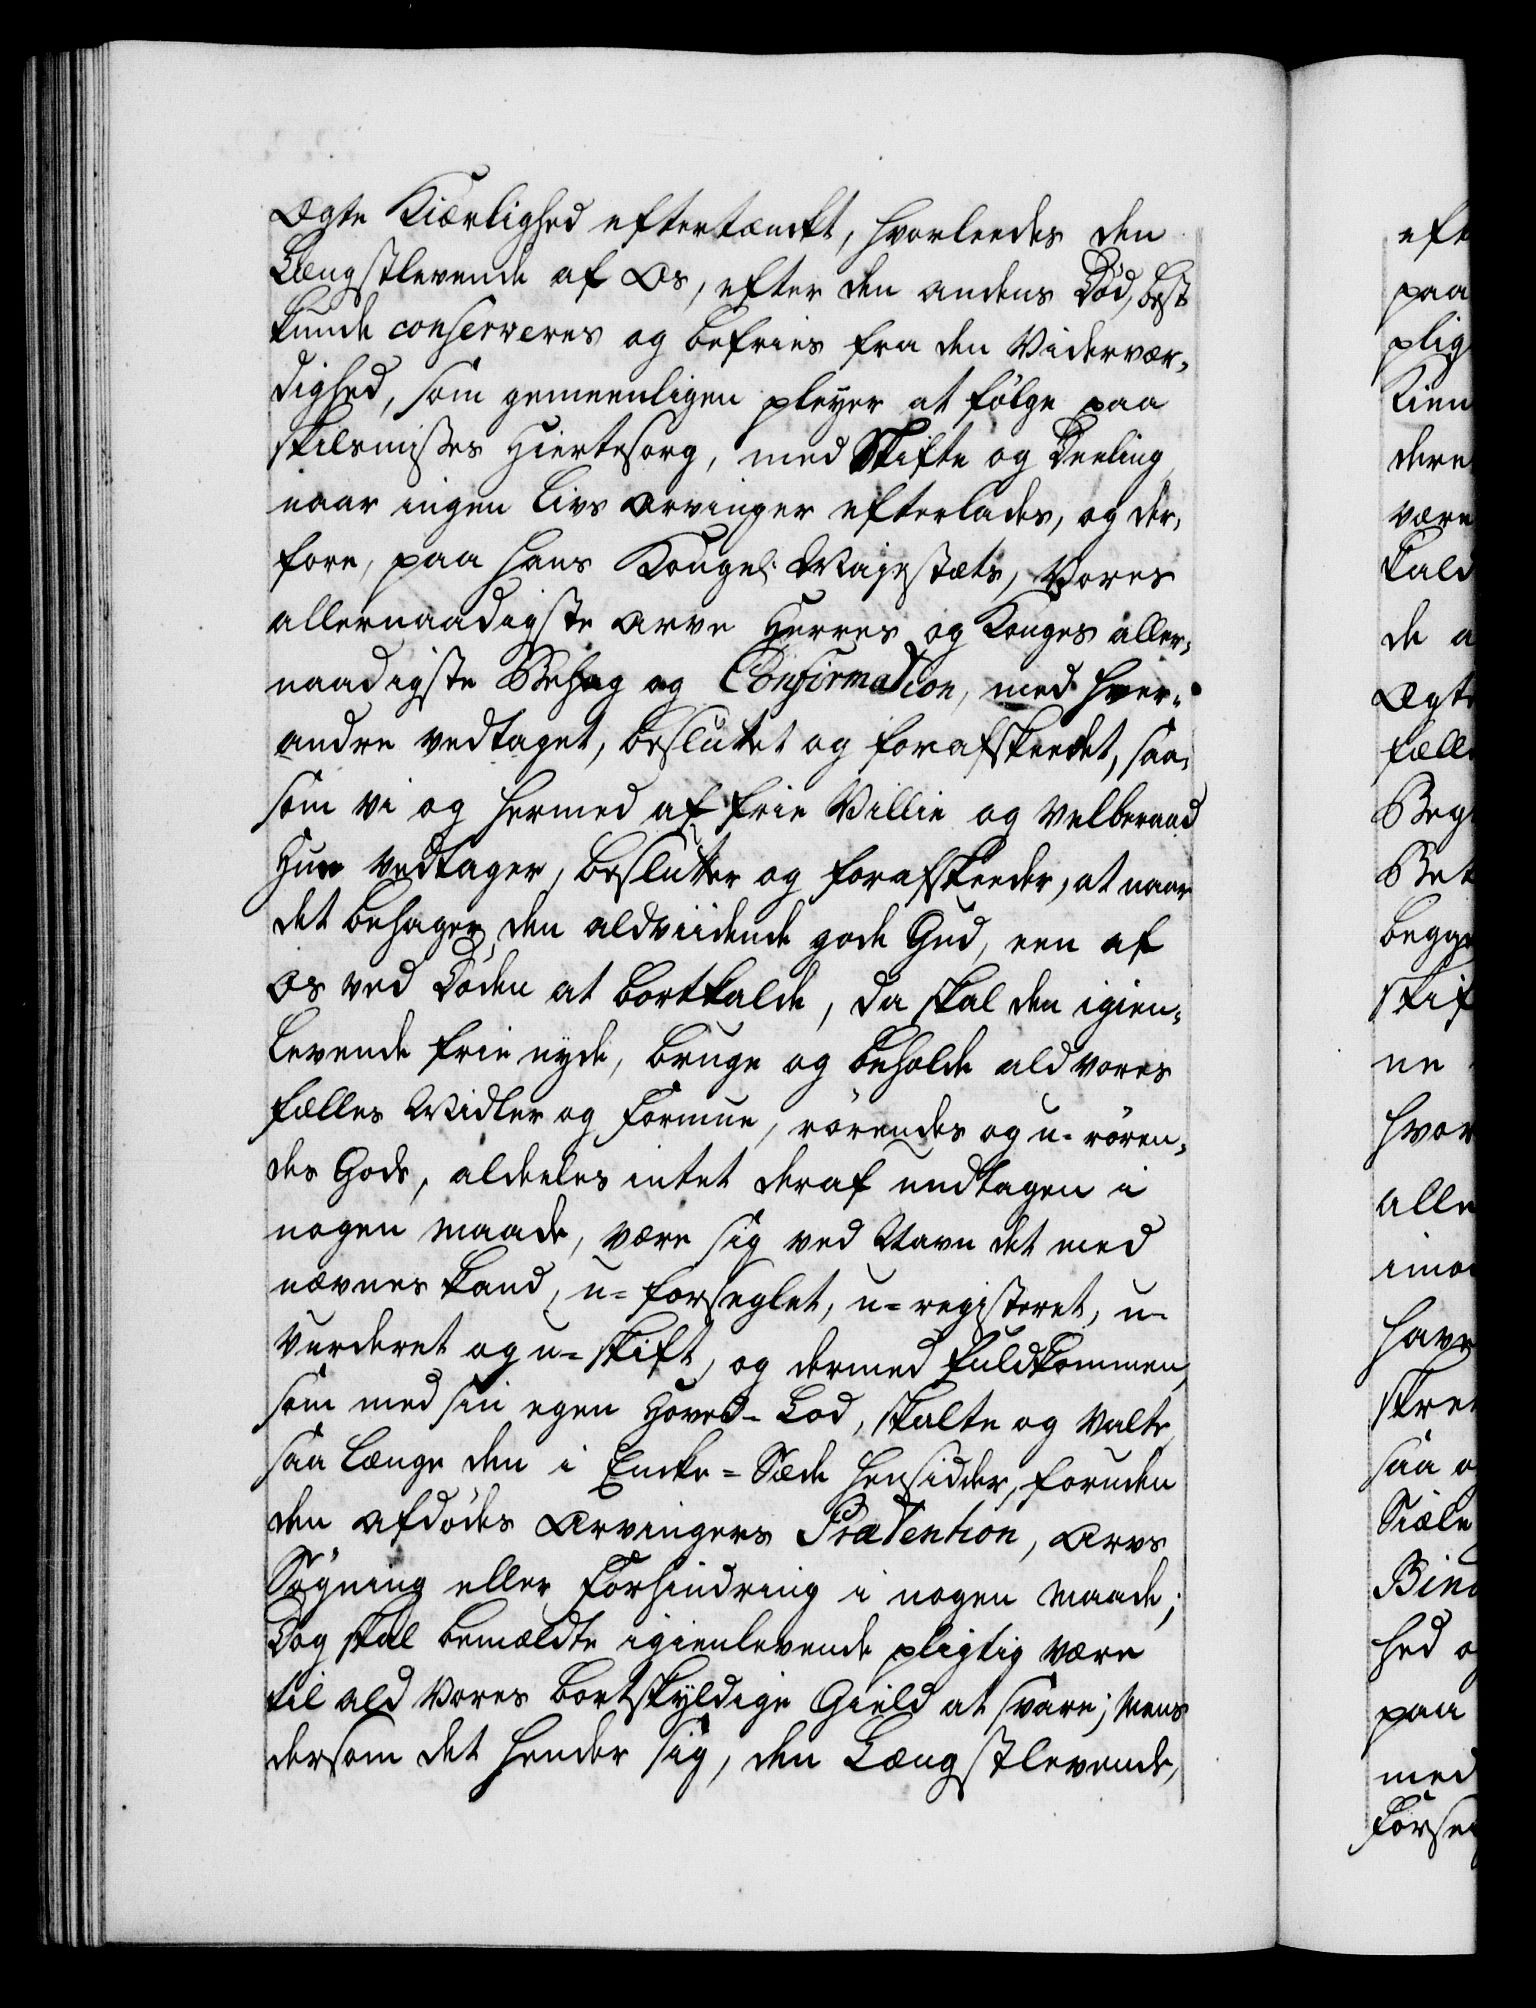 Ægte Kiærlighed eftertænckt, hvorleedes den
Længstlevende af Os, efter den andens Död, best
kunde conserveres og befries fra den Vidervær-
dighed, som gemeenligen pleyer at fölge paa
skilsmisses Hiertesorg, med Skifte og Deeling
naar ingen Livs Arvinger efterlades, og der-
fore, paa Hans Kongel: Majestæts, Vores
allernaadigste Arve Herres og Konges aller-
naadigste Behag og Confirmation, med hver-
andre vedtaget, besluttet og forafskeedet, saa-
som vi og hermed af frie Villie og velberaad
Hue vedtager, beslutter og forafskeeder, at naar
det behager den aldviidende gode Gud, een af
os ved Döden at bortkalde, da skal den igien-
levende frie nyde, bruge og beholde ald vores
fælles Midler og Formue, rörendes og u-rören-
des Gods, aldeeles intet deraf undtagen i
nogen maade, være sig ved Navn det med
nævnes kand, u-forseglet, u-registeret, u-
vurderet og u-skift, og dermed fuldkommen,
som med sin egen Hoved-Lod, skalte og valte,
saa længe den i Encke-Sæde hensidder, foruden
den afdödes Arvingers Prætention, Arvs
Sögning eller Forhindring i nogen maade;
Dog skal bemældte igienlevende pligtig være
til ald vores bortskyldige Gield at svare; Mens
dersom det hender sig, den Længstlevende,
eft
paa
plig
Kien
dere
være
kald
de a
Ægte
fælle
Beg
Bet
begge
skif
ne
hvor
alle
imo
have
skre
saa o
Siæle
Bind
hed o
paa
med
Forse